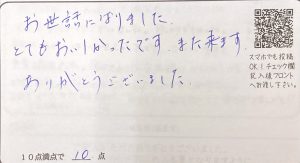 お世話になりました。
とてもおいしかったです。また来ます。
ありがとうございました。
スマホでも投稿
OK！チェック欄
記入後フロント
へお渡し下さい。
10点満点で 10 点